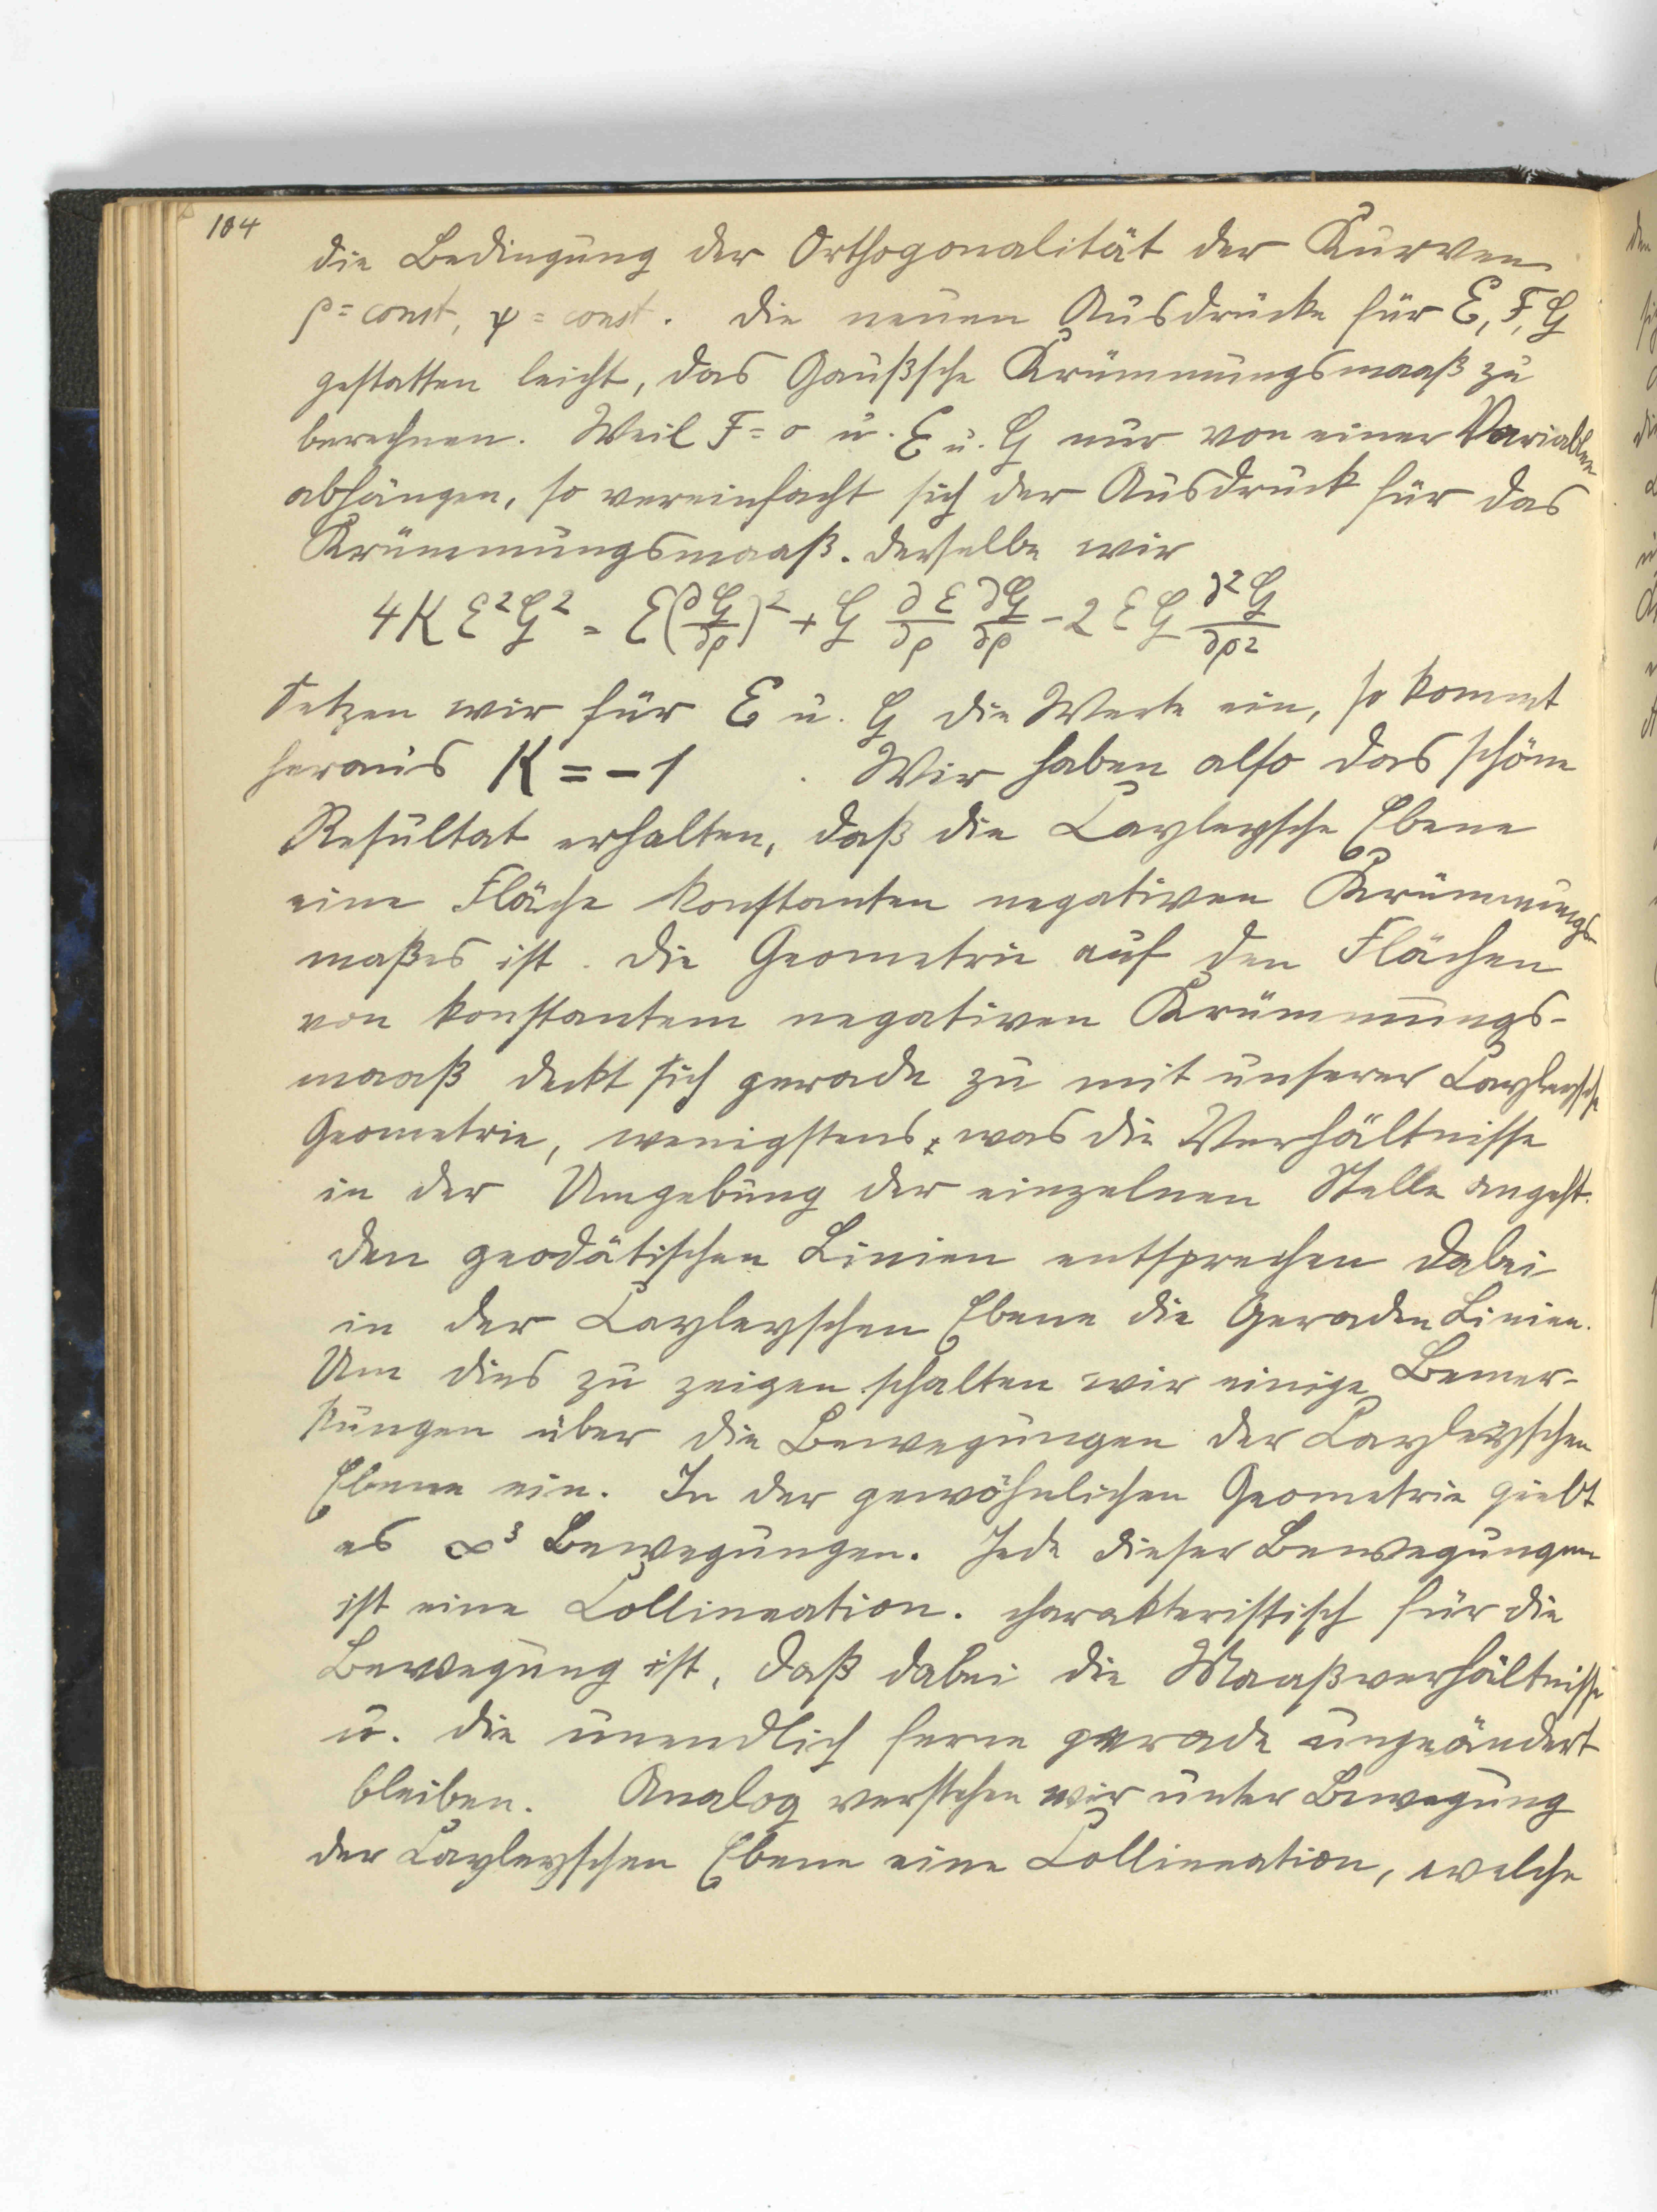 104
die Bedingung der Orthogonalität der Kurven
ρ = const, ψ = const. die neuen Ausdrücke für E, F, G
gestatten leicht, das Gaußsche Krümmungsmaaß zu
berechnen. Weil F = 0 u. E u. G nur von einer Variablen
abhängen, so vereinfacht sich der Ausdruck für das
Krümmungsmaaß. derselbe wir
4K E²G² = E(∂G/∂ρ)² + G ∂E/∂ρ ∂G/∂ρ - 2 E G ∂²G/∂ρ²
Setzen wir für E u. G die Werte ein, so kommt
heraus K = -1 . Wir haben also das schöne
Resultat erhalten, daß die Cayleysche Ebene
eine Fläche konstanten negativen Krümmungs-
maßes ist. die Geometrie auf den Flächen
von konstantem negativen Krümmungs-
maaß deckt sich gerade zu mit unserer Cayleysche
Geometrie, wenigstens, was die Verhältnisse
in der Umgebung der einzelnen Stelle angeht.
den geodätischen Linien entsprechen dabei
in der Cayleyschen Ebene die Geraden Linien.
Um dies zu zeigen schalten wir einige Bemer-
kungen über die Bewegungen der Cayleyschen
Ebene ein. In der gewöhnlichen Geometrie giebt
es ∞³ Bewegungen. Jede dieser Bewegungen
ist eine Collineation. charakteristisch für die
Bewegung ist, daß dabei die Maaßverhältnisse
u. die unendlich ferne gerade ungeändert
bleiben. Analog verstehen wir unter Bewegung
der Cayleyschen Ebene eine Collineation, welche